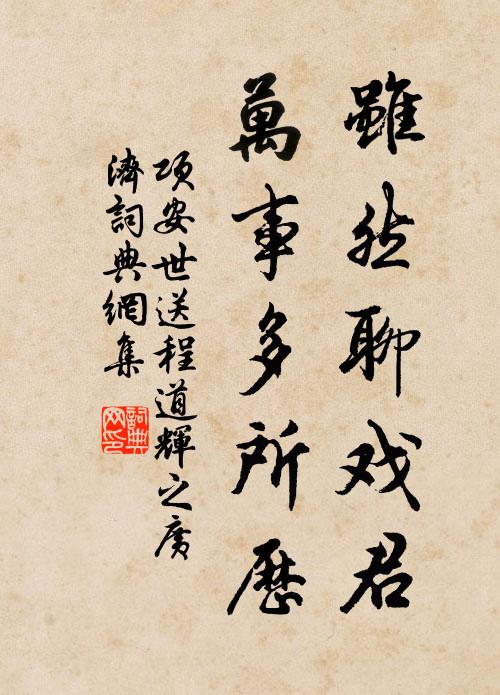 雖然聊戏君
萬事多所歷
项安世送程道輝之廣
濟詞典網集
詞典网印